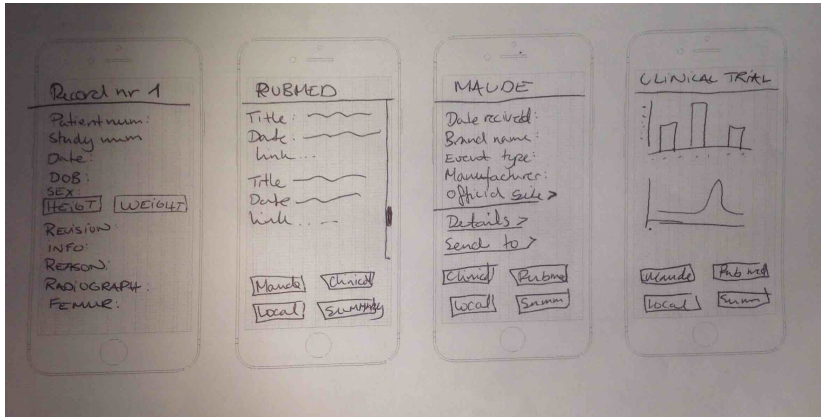 Record nr 1
Patient num:
Study num
Date:
DOB:
SEX:
HEIGT WEIGHT
REVISION:
INFO:
REASON:
RADIOGRAPH:
FEMUR:
PUBMED
Title:
Date:
link ...
Title
Date
link ....
Maude Clinical
Local SUMMARY
MAUDE
Date recived:
Brand name:
Event type:
Manufacturer:
Official Site >
Details >
Send to >
Clinical Pubmed
Local Summ
CLINICAL TRIAL
Maude Pub med
Local Summ